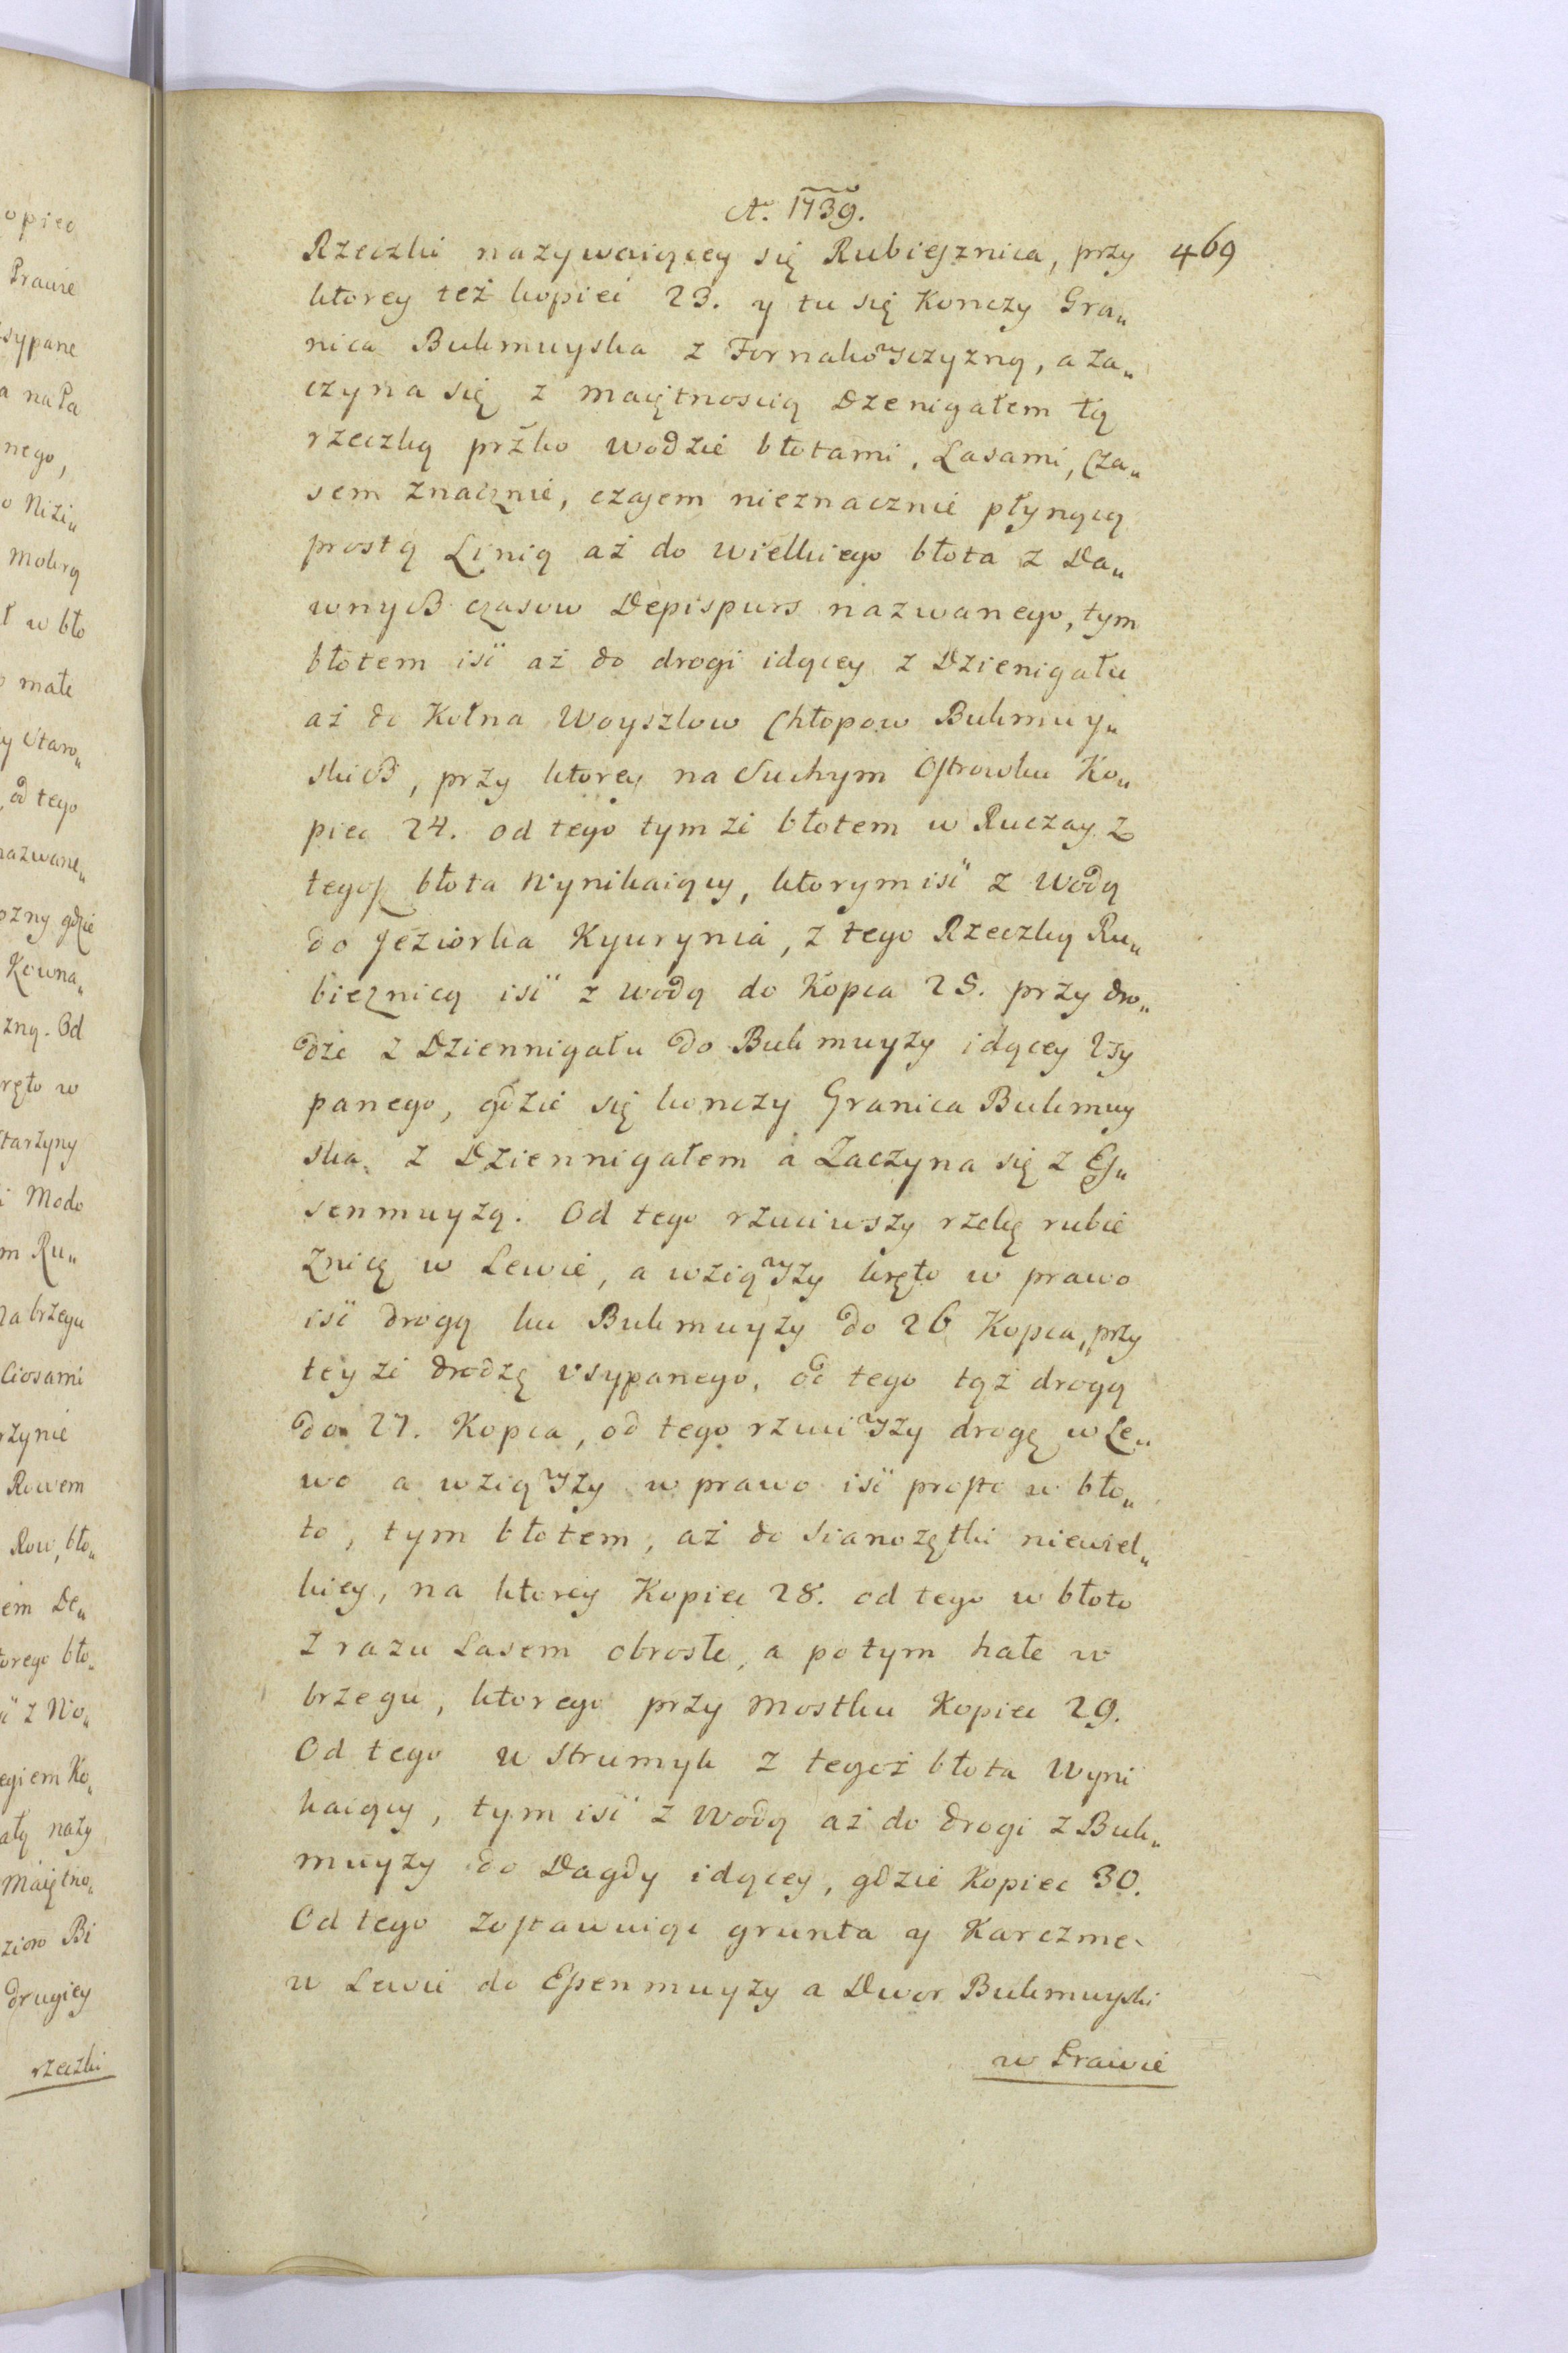 Ao. 1739.
469
Rzeczki nazywaiącey się Rubiesznica, przy
ktorey też kopiec 23. y tu się Konczy Gra„
nica Bukmuyska z Fornakowszczyzną, a za„
czyna się z maiętnoscią Dzenigałem tą
rzeczką przko wodzie błotami, Lasami, Cza„
sem znacznie, czasem nieznacznie płynącą
prostą Linią aż do wielkiego błota z Da„
wnych czasow Depispurs nazwanego, tym
błotem isć aż do drogi idącey z Dzienigału
aż do Kołna Woyszlow Chłopow Bukmuy„
skich, przy ktorey na Suchym Ostrowku Ko„
piec 24. od tego tymże błotem w Ruczay z
tegoż błota Wynikaiący, ktorym isć z Wodą
do Jeziorka Kyurynia, z tego Rzeczką Ru„
biesznicą isć z wodą do Kopca 25. przy dro„
dze z Dziennigału do Bukmuyzy idącey Usy
panego, gdzie się konczy Granica Bukmuy
ska z Dziennigałem a Zaczyna się z Es„
senmuyzą. Od tego rzuciwszy rzekę rubie
znicę w Lewie, a wziąwszy kręto w prawo
isć drogą ku Bukmuyzy do 26 Kopca, przy
teyże drodzę usypanego, od tego tąż drogą
do 27. Kopca, od tego rzuciwszy drogę w Le„
wo a wziąwszy w prawo isć prosto w bło„
to, tym błotem, aż do Sianożętki niewiel„
kiey, na ktorey Kopiec 28. od tego w błoto
z razu Lasem obrosłe, a potym hałe w
brzegu, ktorego przy mostku Kopiec 29.
Od tego w Strumyk z tegoż błota Wyni
kaiący, tym isć z Wodą aż do drogi z Buk„
muyzy do Dagdy idącey, gdzie Kopiec 30.
Od tego Zostawuiąc grunta y Karczme
w Lewie do Essenmuyzy a Dwor Bukmuyski
w Prawie
opiec
Prawie
sypane
a na Pa
nego,
o Nizi„
Mokrą
w bło
małe
Staro„
od tego
nazwane„
ozny gdzie
Kowna„
zną. Od
ręto w
Starzyny
Modo
m Ru„
na brzegu
Ciosami
rzynie
Rowem
Row, bło„
em De„
torego bło„
z Wo„
egiem Ko„
ałą nazy
Maiętno„
zioro Bi
drugiey
rzeczki